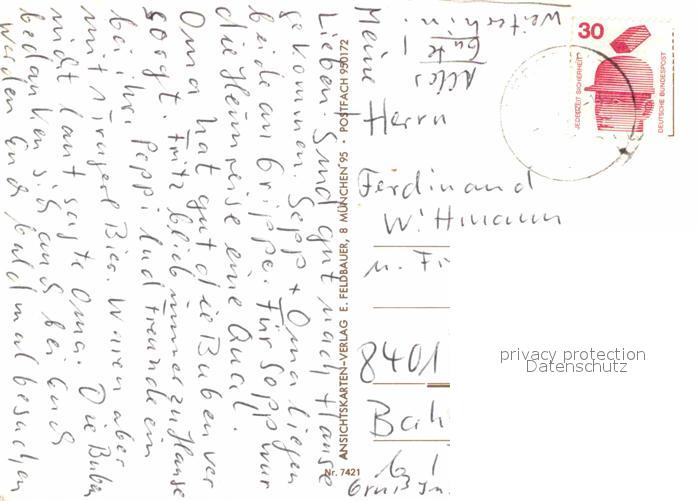 Meine
Lieben. Sind gut nach Hause
gekommen. Sepp + Oma liegen
beide an Grippe. Für Sepp war
die Heimreise eine Qual.
Oma hat gut die Buben ver
sorgt. Fritz blieb immer zu Hause
bei ihr. Peppi lud Freunde ein
mit Bier. Waren aber
nicht laut sagte Oma. Die Buben
bedanken sich auch bei Euch
werden Euch bald mal besuchen
Weiterhin
Alles
Gute!
ANSICHTSKARTEN-VERLAG E. FELDBAUER, 8 MÜNCHEN 95 · POSTFACH 950172
Nr. 7421
30
JEDERZEIT SICHERHEIT
DEUTSCHE BUNDESPOST
Herrn
Ferdinand
Wittmann
u. Fr
8401
Bah
b/
privacy protection
Datenschutz